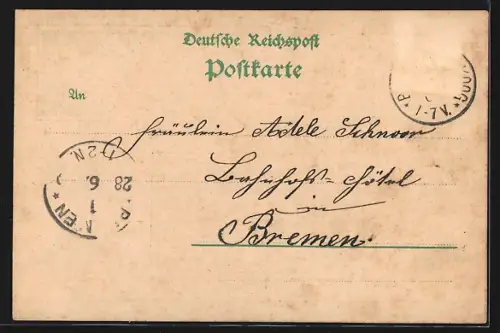 Deutsche Reichspost
Postkarte
An
Fräulein Adele Schnoor
Bahnhofs-Hôtel
in
Bremen.
1-7V.
12 N.
28 6.
1
EN *